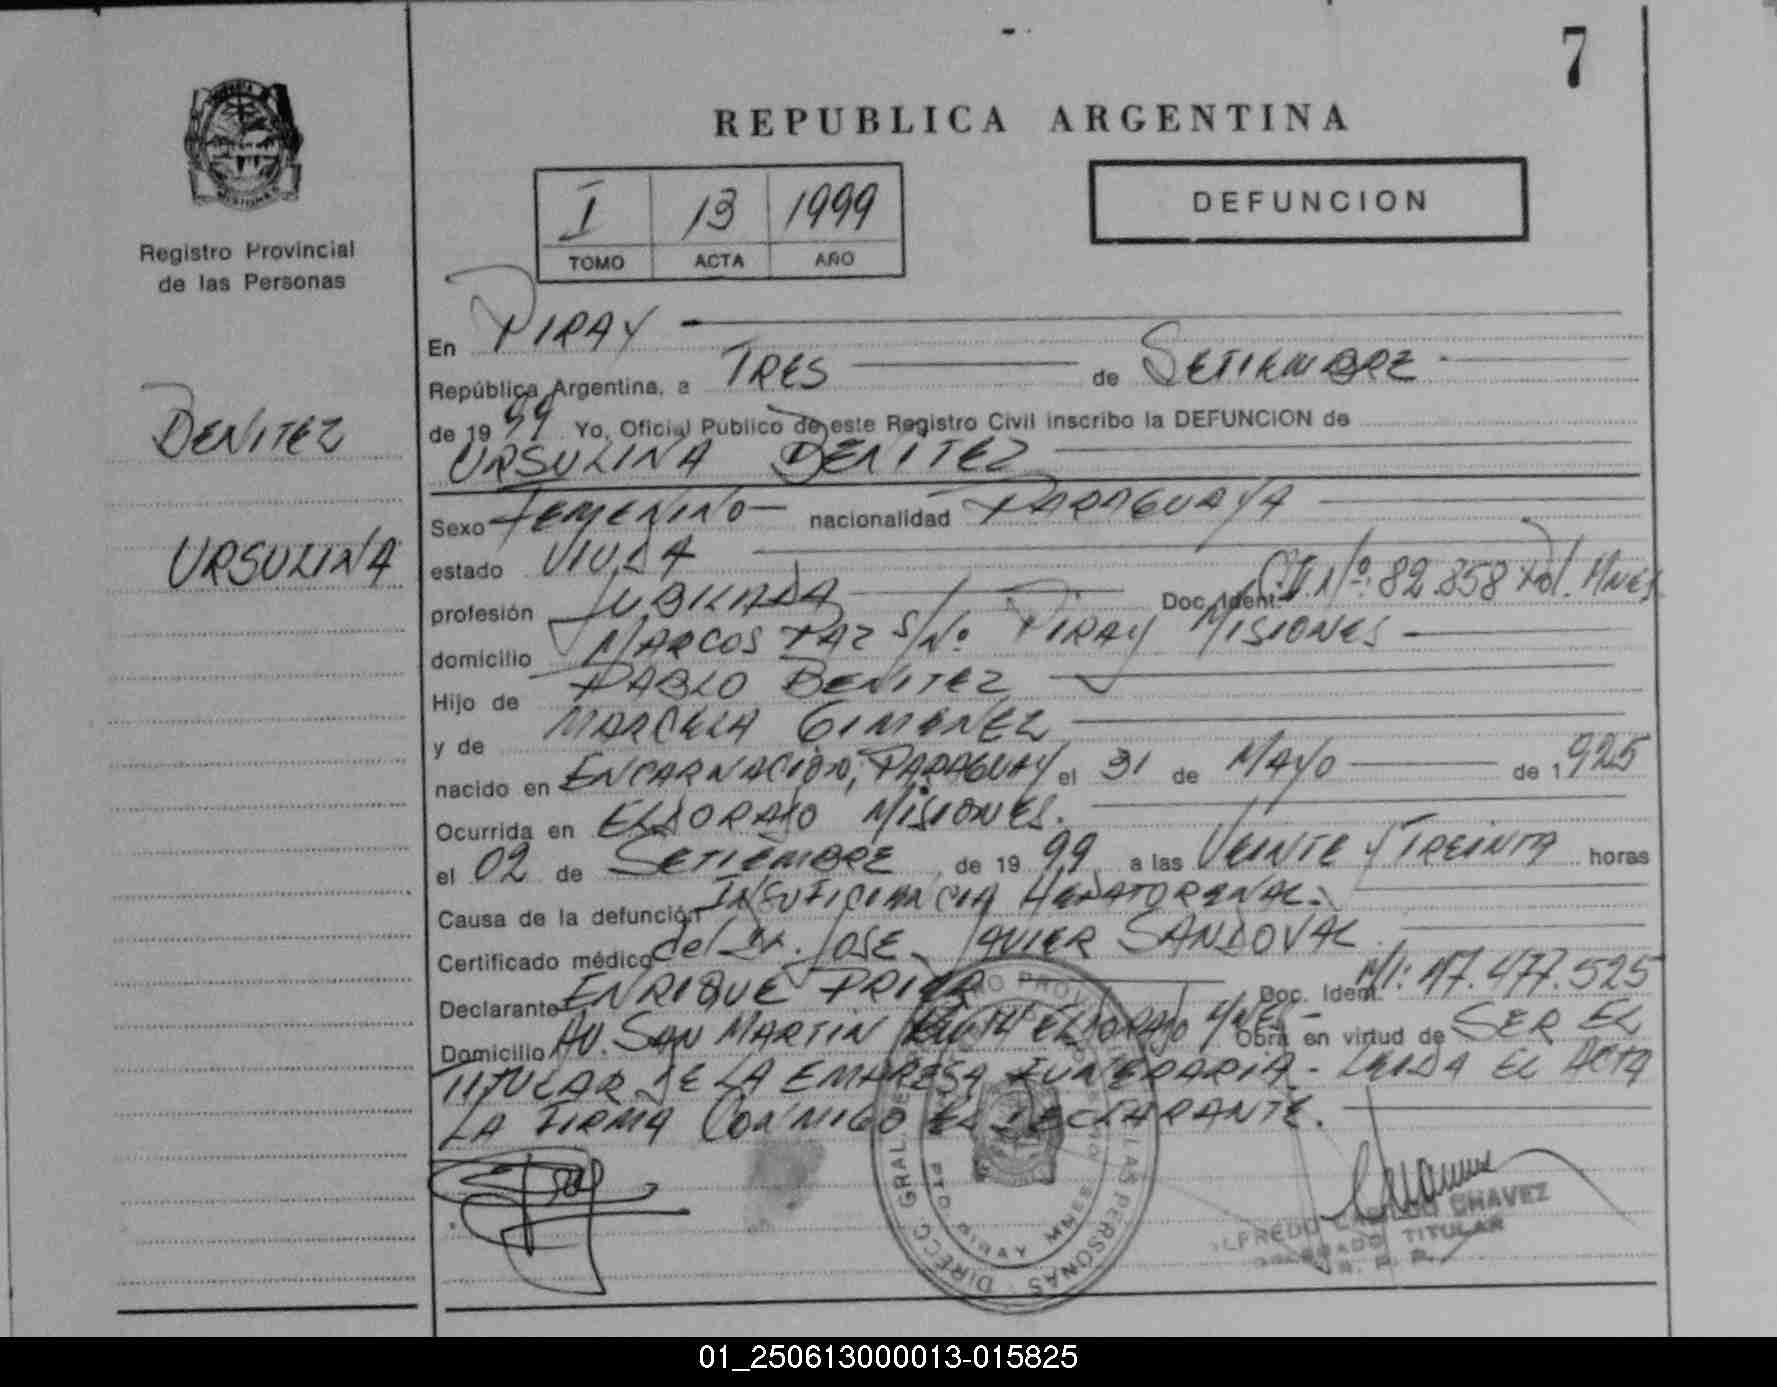 7
REPUBLICA ARGENTINA
I 13 1999
TOMO ACTA AÑO
DEFUNCION
Registro Provincial
de las Personas
BENITEZ
URSULINA
En PIRAY
República Argentina, a TRES de SETIEMBRE
de 1999 Yo, Oficial Publico de este Registro Civil inscribo la DEFUNCION de
URSULINA BENITEZ
Sexo FEMENINO nacionalidad PARAGUAYA
estado VIUDA
profesión JUBILADA Doc. Ident. C.I. Nº: 82.858 Pol. MNES
domicilio MARCOS PAZ S/Nº PIRAY MISIONES
Hijo de PABLO BENITEZ
y de MARCELA GIMENEZ
nacido en ENCARNACION, PARAGUAY el 31 de MAYO de 1925
Ocurrida en ELDORADO MISIONES.
el 02 de SETIEMBRE de 1999 a las VEINTE y TREINTA horas
Causa de la defunción INSUFICIENCIA HEPATORENAL.
Certificado médico del Dr. JOSE JAVIER SANDOVAL
Declarante ENRIQUE PRIER Doc. Ident. M.I: 17.477.525
Domicilio AV. SAN MARTIN ELDORADO MNES- Obra en virtud de SER EL
TITULAR DE LA EMPRESA FUNERARIA - LEIDA EL ACTA
LA FIRMA CONMIGO EL DECLARANTE.
DIRECC. GRAL. PERSONAS
PTO PIRAY MNES
ALFREDO CHAVEZ
DELEGADO TITULAR
R. P. P.
01_250613000013-015825